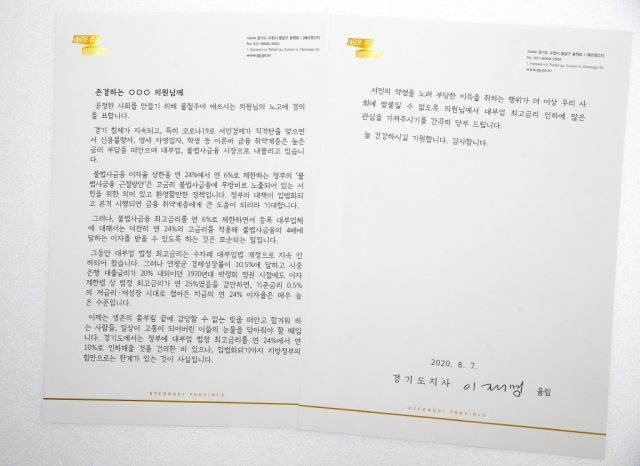 존경하는 ○○○ 의원님께
공정한 사회를 만들기 위해 불철주야 애쓰시는 의원님의 노고에 경의
를 표합니다.
경기 침체가 지속되고, 특히 코로나19로 서민경제가 직격탄을 맞으면
서 신용불량자, 영세 자영업자, 학생 등 이른바 금융 취약계층은 높은
금리 부담을 떠안으며 대부업, 불법사금융 시장으로 내몰리고 있습니
다.
불법사금융 이자율 상한을 연 24%에서 연 6%로 제한하는 정부의 '불
법사금융 근절방안'은 고금리 불법사금융에 무방비로 노출되어 있는 서
민을 위한 의미 있고 환영할만한 정책입니다. 정부의 대책이 입법화되
고 본격 시행되면 금융 취약계층에게 큰 도움이 되리라 기대합니다.
그러나, 불법사금융 최고금리를 연 6%로 제한하면서 등록 대부업체
에 대해서는 여전히 연 24%의 고금리를 적용해 불법사금융의 4배에
달하는 이자를 받을 수 있도록 하는 것은 모순되는 일입니다.
그동안 대부업 법정 최고금리는 수차례 대부업법 개정으로 지속 인
하되어 왔습니다. 그러나 연평균 경제성장률이 10.5%에 달하고 시중
은행 대출금리가 20% 내외이던 1970년대 박정희 정권 시절에도 이자
제한법 상 법정 최고금리가 연 25%였음을 감안하면, 기준금리 0.5%
의 저금리·저성장 시대로 접어든 지금의 연 24% 이자율은 매우 높
은 수준입니다.
이제는 생존의 몸부림 끝에 감당할 수 없는 빚을 떠안고 힘겨워 하
는 사람들, 일상이 고통이 되어버린 이들의 눈물을 닦아줘야 할 때입
니다. 경기도에서는 정부에 대부업 법정 최고금리를 연 24%에서 연
10%로 인하해줄 것을 건의한 바 있으나, 입법화되기까지 지방정부의
힘만으로는 한계가 있는 것이 사실입니다.
GYEONGGI PROVINCE
www.gg.go.kr
서민의 약점을 노려 부당한 이득을 취하는 행위가 더 이상 우리 사
회에 발붙일 수 없도록 의원님께서 대부업 최고금리 인하에 많은
관심을 가져주시기를 간곡히 당부 드립니다.
늘 건강하시길 기원합니다. 감사합니다.
2020. 8. 7.
경기도지사 이재명 올림
GYEONGGI PROVINCE